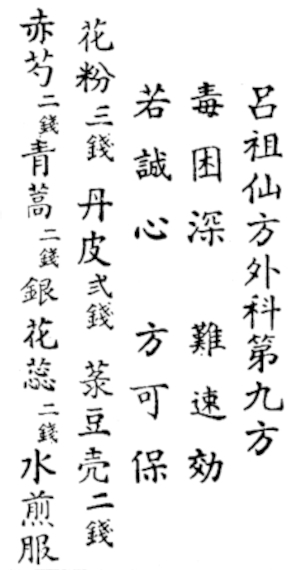 呂祖仙方外科第九方
毒困深 難速効
若誠心 方可保
花粉三錢 丹皮弍錢 菉豆壳二錢
赤芍二錢青蒿二錢銀花蕊二錢水煎服